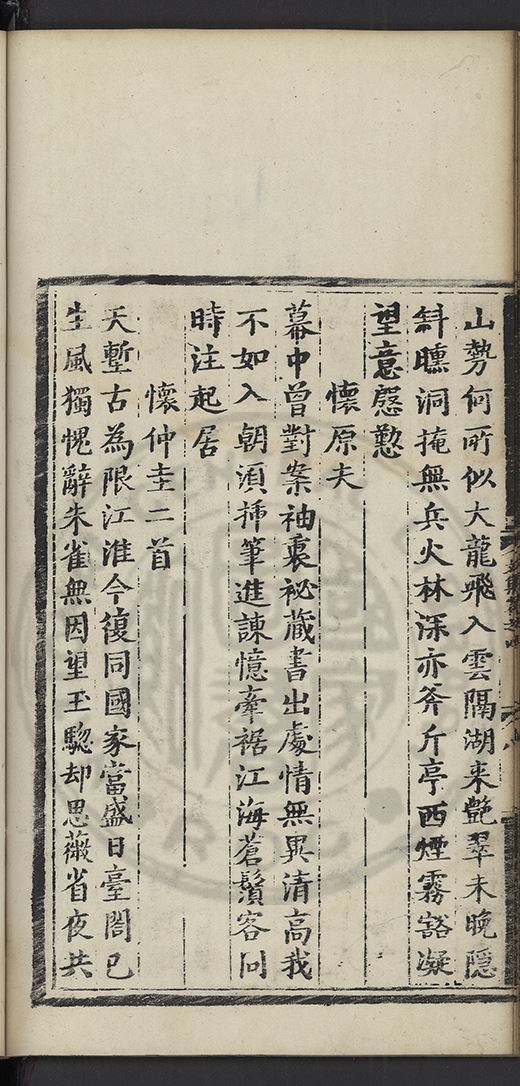 山勢何所似大龍飛入雲隔湖来艶翠未晚隠
斜曛洞掩無兵火林深亦斧斤亭西煙霧豁凝
望意慇懃
懷原夫
幕中曾對案袖裏祕藏書出處情無異清高我
不如入朝須揷筆進諫憶牽裾江海蒼鬚客囙
時注起居
懷仲圭二首
天塹古為限江淮今復同國家當盛日臺閣已
生風獨愧辭朱雀無因望玉驄却思薇省夜共